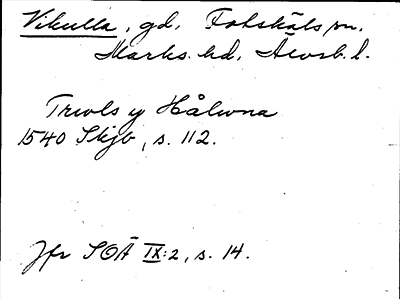 Vikulla, gd, Fotskäls sn.
Marks hd, Älvsb. l.
Truls y Hålwna
1540 Skjb, s. 112.
Jfr SOÄ IX:2, s. 14.